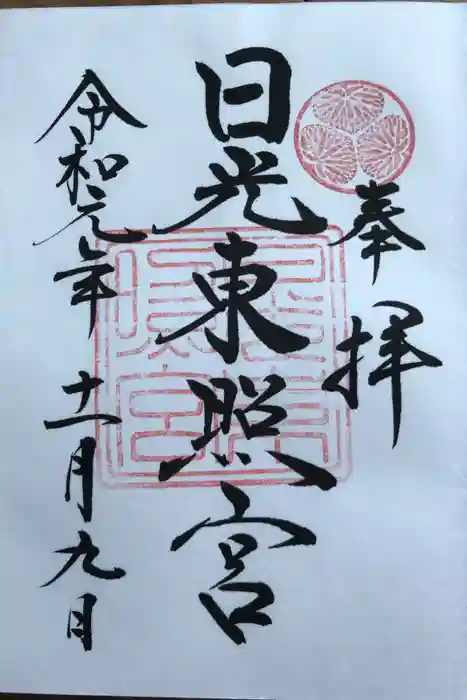 奉拝
日光東照宮
令和元年十一月九日